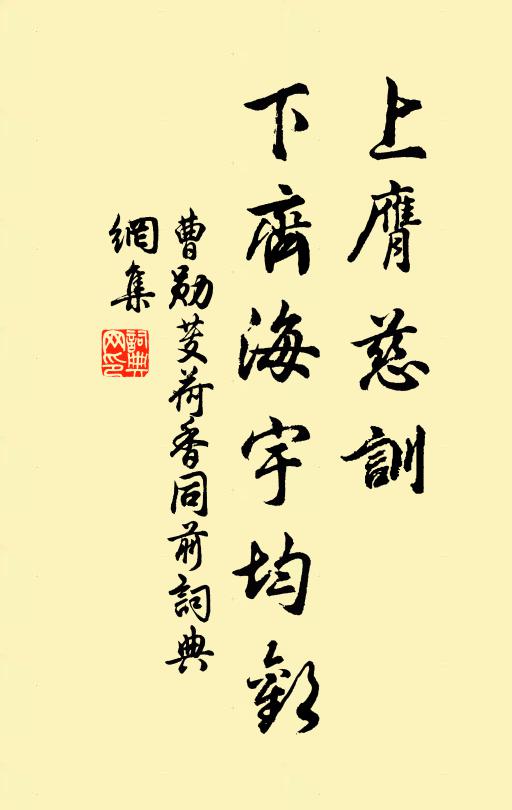 上膺慈訓
下齊海宇均歡
曹勛芰荷香同前詞典
網集
詞典
网印